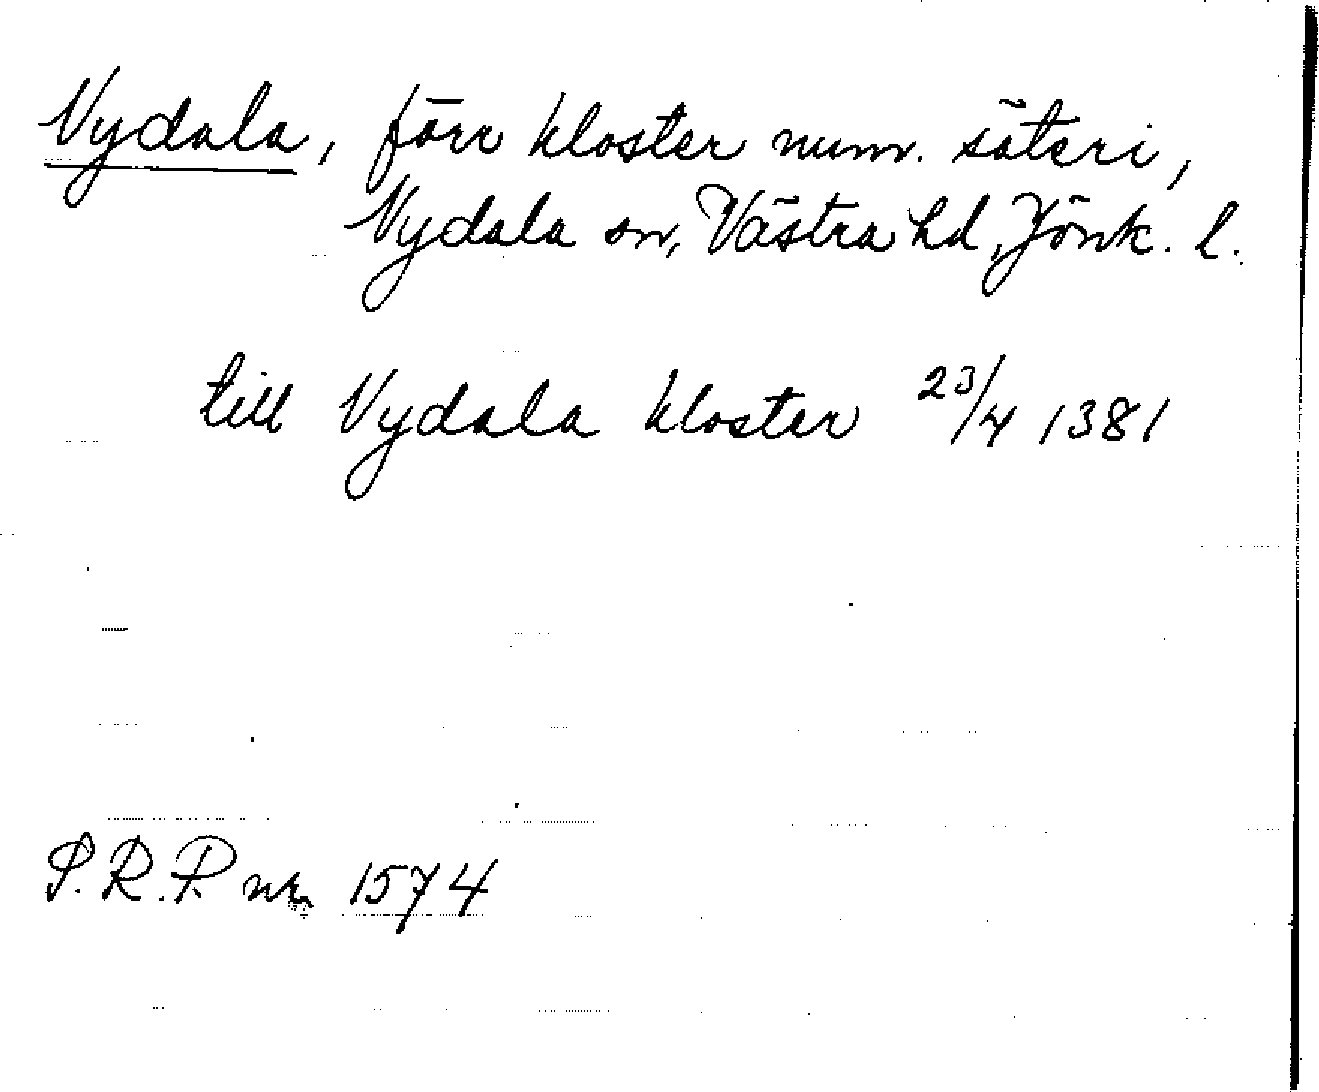 Nydala, förr kloster num. säteri,
Nydala sn, Västra hd, Jönk. l.
till Nydala kloster 23/4 1381
S.R.P. nr 1574